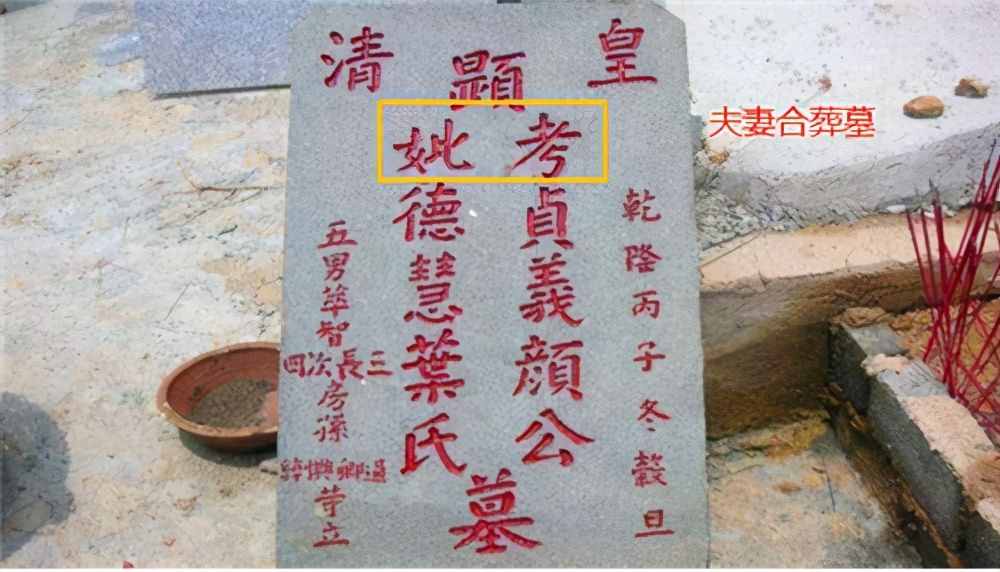 皇清
乾隆丙子冬穀旦
顯
考貞義顏公
妣德慧葉氏
墓
五男萃智
三長次四
房孫
等立
夫妻合葬墓